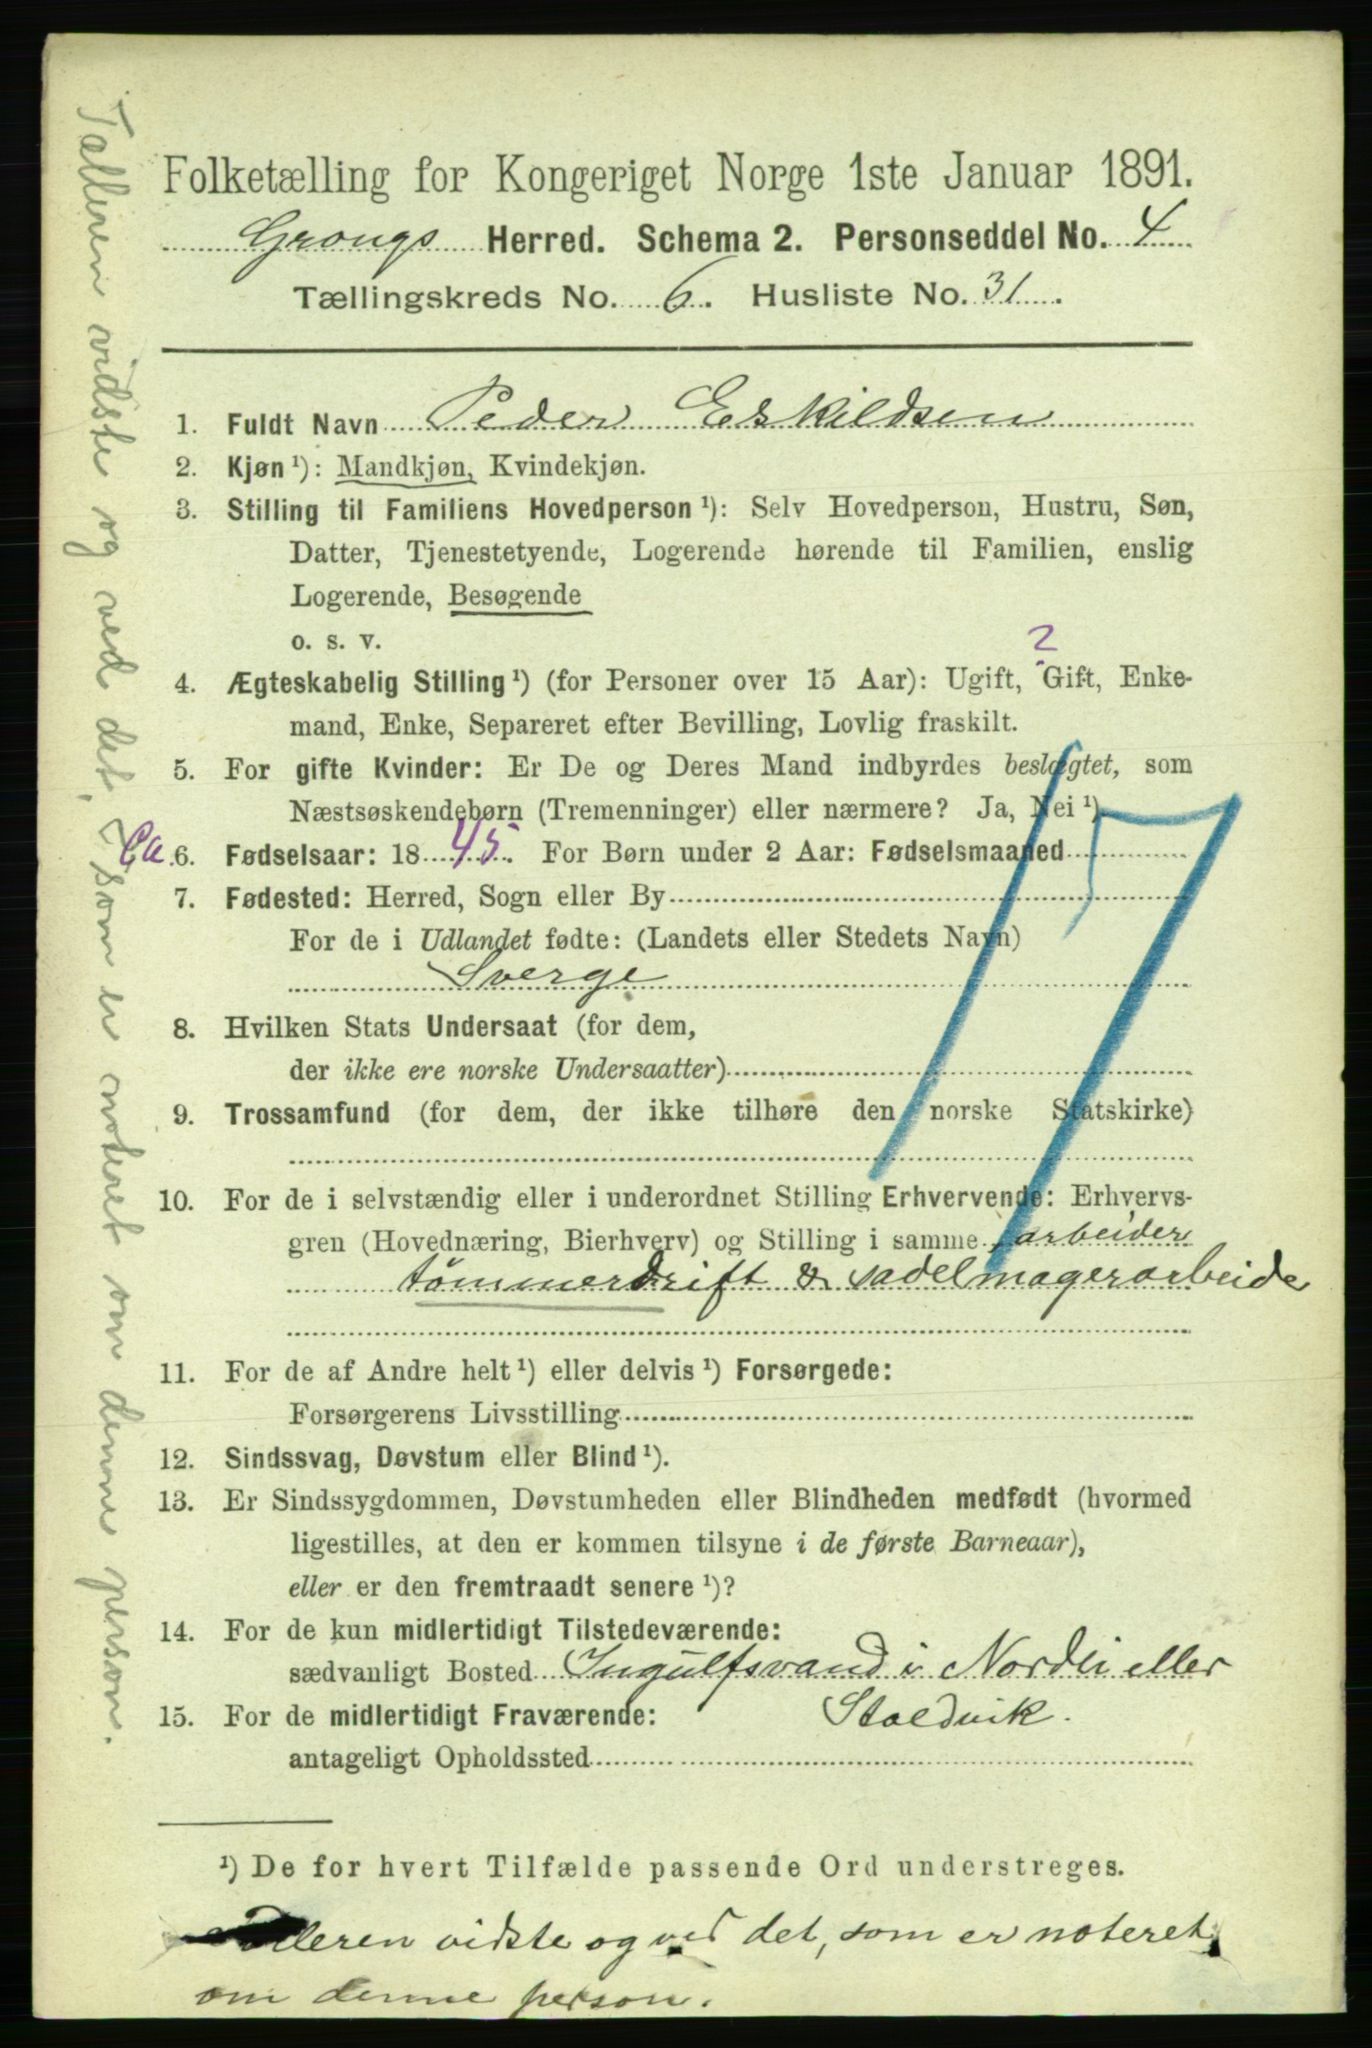 Folketælling for Kongeriget Norge 1ste Januar 1891.
Grongs Herred. Schema 2. Personseddel No. 4
Tællingskreds No. 6. Husliste No. 31.
1. Fuldt Navn Peder Eskildsen
2. Kjøn ¹): Mandkjøn, Kvindekjøn.
3. Stilling til Familiens Hovedperson ¹): Selv Hovedperson, Hustru, Søn,
Datter, Tjenestetyende, Logerende hørende til Familien, enslig
Logerende, Besøgende
o. s. v.
?
4. Ægteskabelig Stilling ¹) (for Personer over 15 Aar): Ugift, Gift, Enke-
mand, Enke, Separeret efter Bevilling, Lovlig fraskilt.
5. For gifte Kvinder: Er De og Deres Mand indbyrdes beslægtet, som
Næstsøskendebørn (Tremenninger) eller nærmere? Ja, Nei ¹)
Ca. 6. Fødselsaar: 1845. For Børn under 2 Aar: Fødselsmaaned
7. Fødested: Herred, Sogn eller By
For de i Udlandet fødte: (Landets eller Stedets Navn)
Sverge
8. Hvilken Stats Undersaat (for dem,
der ikke ere norske Undersaatter)
9. Trossamfund (for dem, der ikke tilhøre den norske Statskirke)
10. For de i selvstændig eller i underordnet Stilling Erhvervende: Erhvervs-
gren (Hovednæring, Bierhverv) og Stilling i samme arbeider
tømmerdrift & sadelmagerarbeide
11. For de af Andre helt ¹) eller delvis ¹) Forsørgede:
Forsørgerens Livsstilling
12. Sindssvag, Døvstum eller Blind ¹).
13. Er Sindssygdommen, Døvstumheden eller Blindheden medfødt (hvormed
ligestilles, at den er kommen tilsyne i de første Barneaar),
eller er den fremtraadt senere ¹)?
14. For de kun midlertidigt Tilstedeværende:
sædvanligt Bosted Ingulfsvand i Nordli eller
15. For de midlertidigt Fraværende: Staldvik.
antageligt Opholdssted
¹) De for hvert Tilfælde passende Ord understreges.
Tælleren vidste og ved det, som er noteret
om denne person.
Tælleren vidste og ved det, som er noteret om denne person.